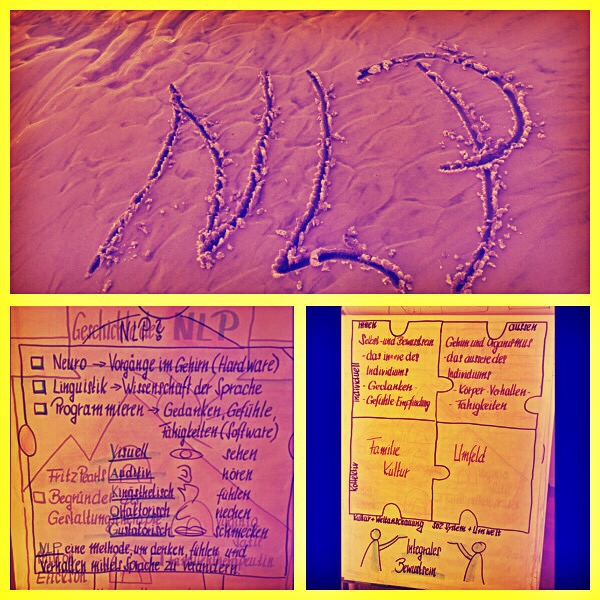 NLP
Geschichte des NLP
NLP?
Neuro → Vorgänge im Gehirn (Hardware)
Linguistik → Wissenschaft der Sprache
Programmieren → Gedanken, Gefühle,
Fähigkeiten (Software)
Visuell sehen
Fritz Pearls Auditiv hören
Begründer Kinästhetisch fühlen
Olfaktorisch riechen
Gustatorisch schmecken
NLP eine methode, um denken, fühlen und
Verhalten mittels Sprache zu verändern.
Erickson
innen aussen
individuell
Selbst- und Bewustsein
- das innere des
Individiums
- Gedanken -
- Gefühle Empfindung
Gehirn und Organismus
- das aussere des
Individiums
- Körper-Verhalten -
- Fähigkeiten
Kollektiv
Familie
Kultur
Umfeld
Kultur + Weltanschauung Soz System + Umwelt
Integrales
Bewustsein